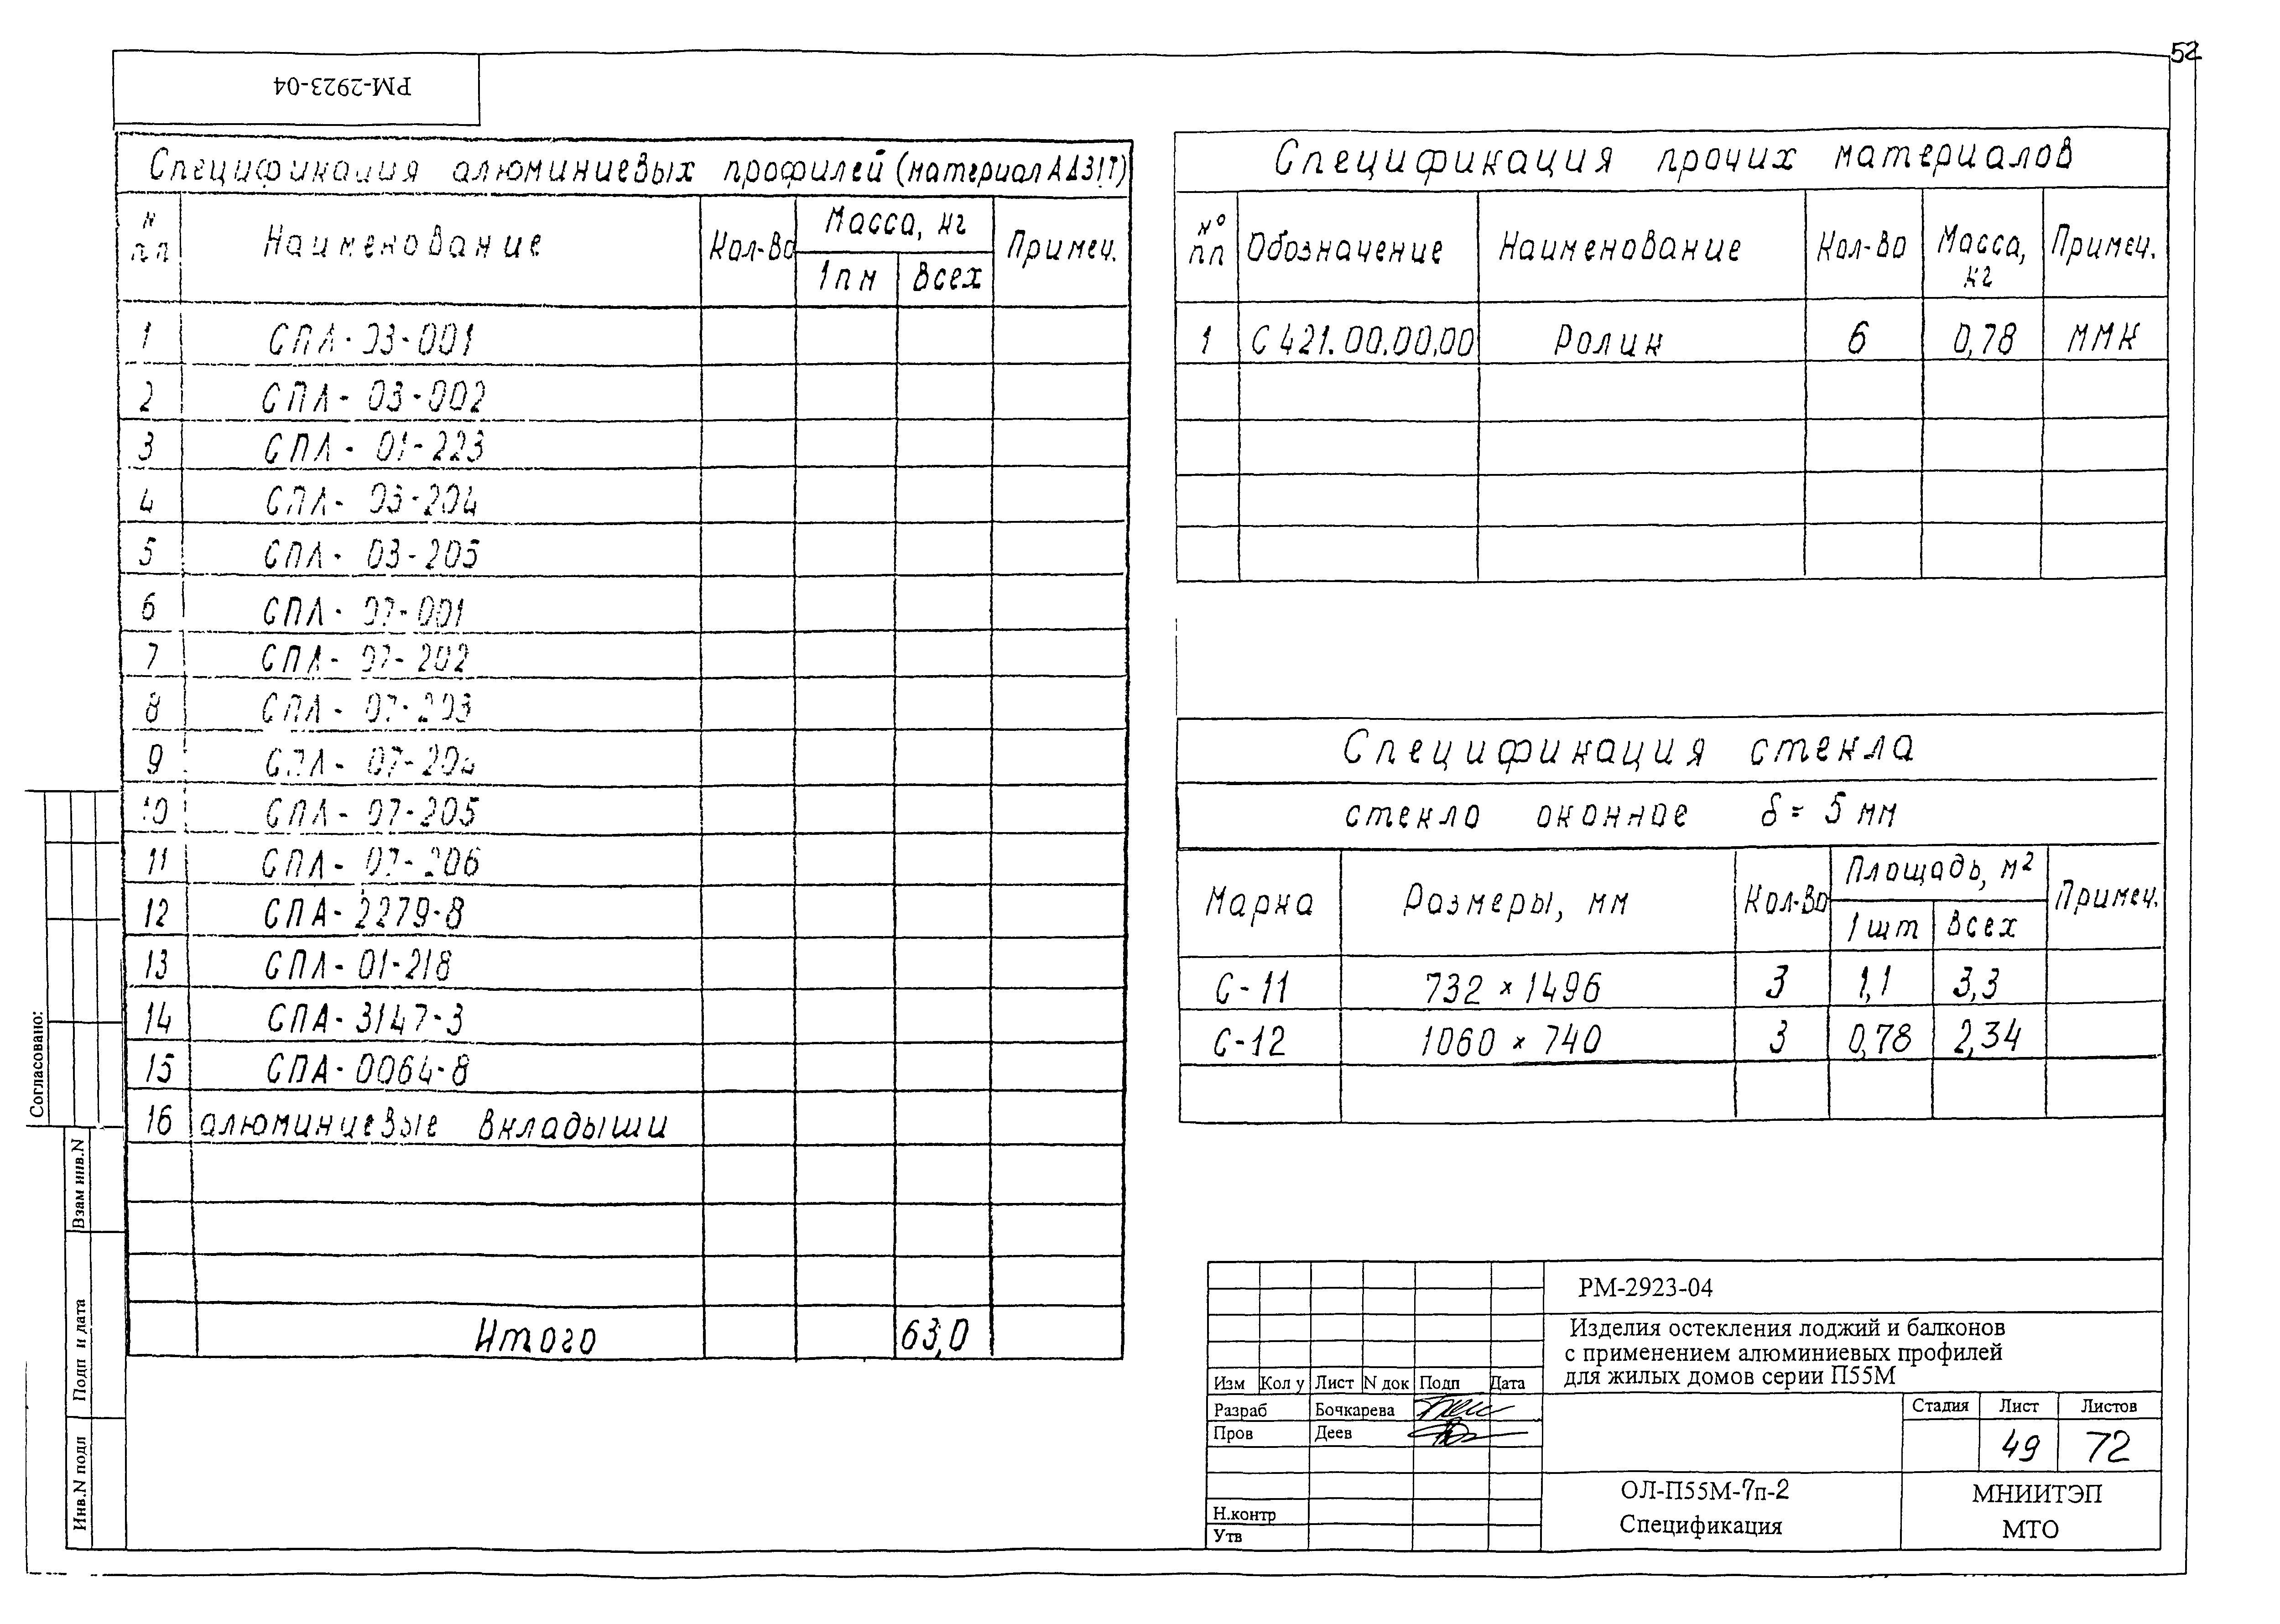 52
РМ-2923-04
Спецификация алюминиевых профилей (материал АД31Т)
N пп Наименование Кол-во Масса, кг Примеч.
1пм Всех
1 СПЛ-03-001
2 СПЛ-03-002
3 СПЛ-01-223
4 СПЛ-03-204
5 СПЛ-03-205
6 СПЛ-07-001
7 СПЛ-07-202
8 СПЛ-07-203
9 СПЛ-07-204
10 СПЛ-07-205
11 СПЛ-07-206
12 СПА-2279-8
13 СПЛ-01-218
14 СПА-3147-3
15 СПА-0064-8
16 алюминиевые вкладыши
Итого 63,0
Спецификация прочих материалов
№ пп Обозначение Наименование Кол-во Масса, кг Примеч.
1 С421.00.00.00 Ролик 6 0,78 ММК
Спецификация стекла
стекло оконное δ= 5 мм
Марка Размеры, мм Кол-во Площадь, м2 Примеч.
1 шт Всех
С-11 732 × 1496 3 1,1 3,3
С-12 1060 × 740 3 0,78 2,34
Согласовано:
Взам инв.N
Подп и дата
Инв.N подл
РМ-2923-04
Изделия остекления лоджий и балконов
с применением алюминиевых профилей
для жилых домов серии П55М
Изм Кол у Лист N док Подп Дата
Разраб Бочкарева
Пров Деев
Н.контр
Утв
Стадия Лист Листов
49 72
ОЛ-П55М-7п-2
Спецификация
МНИИТЭП
МТО